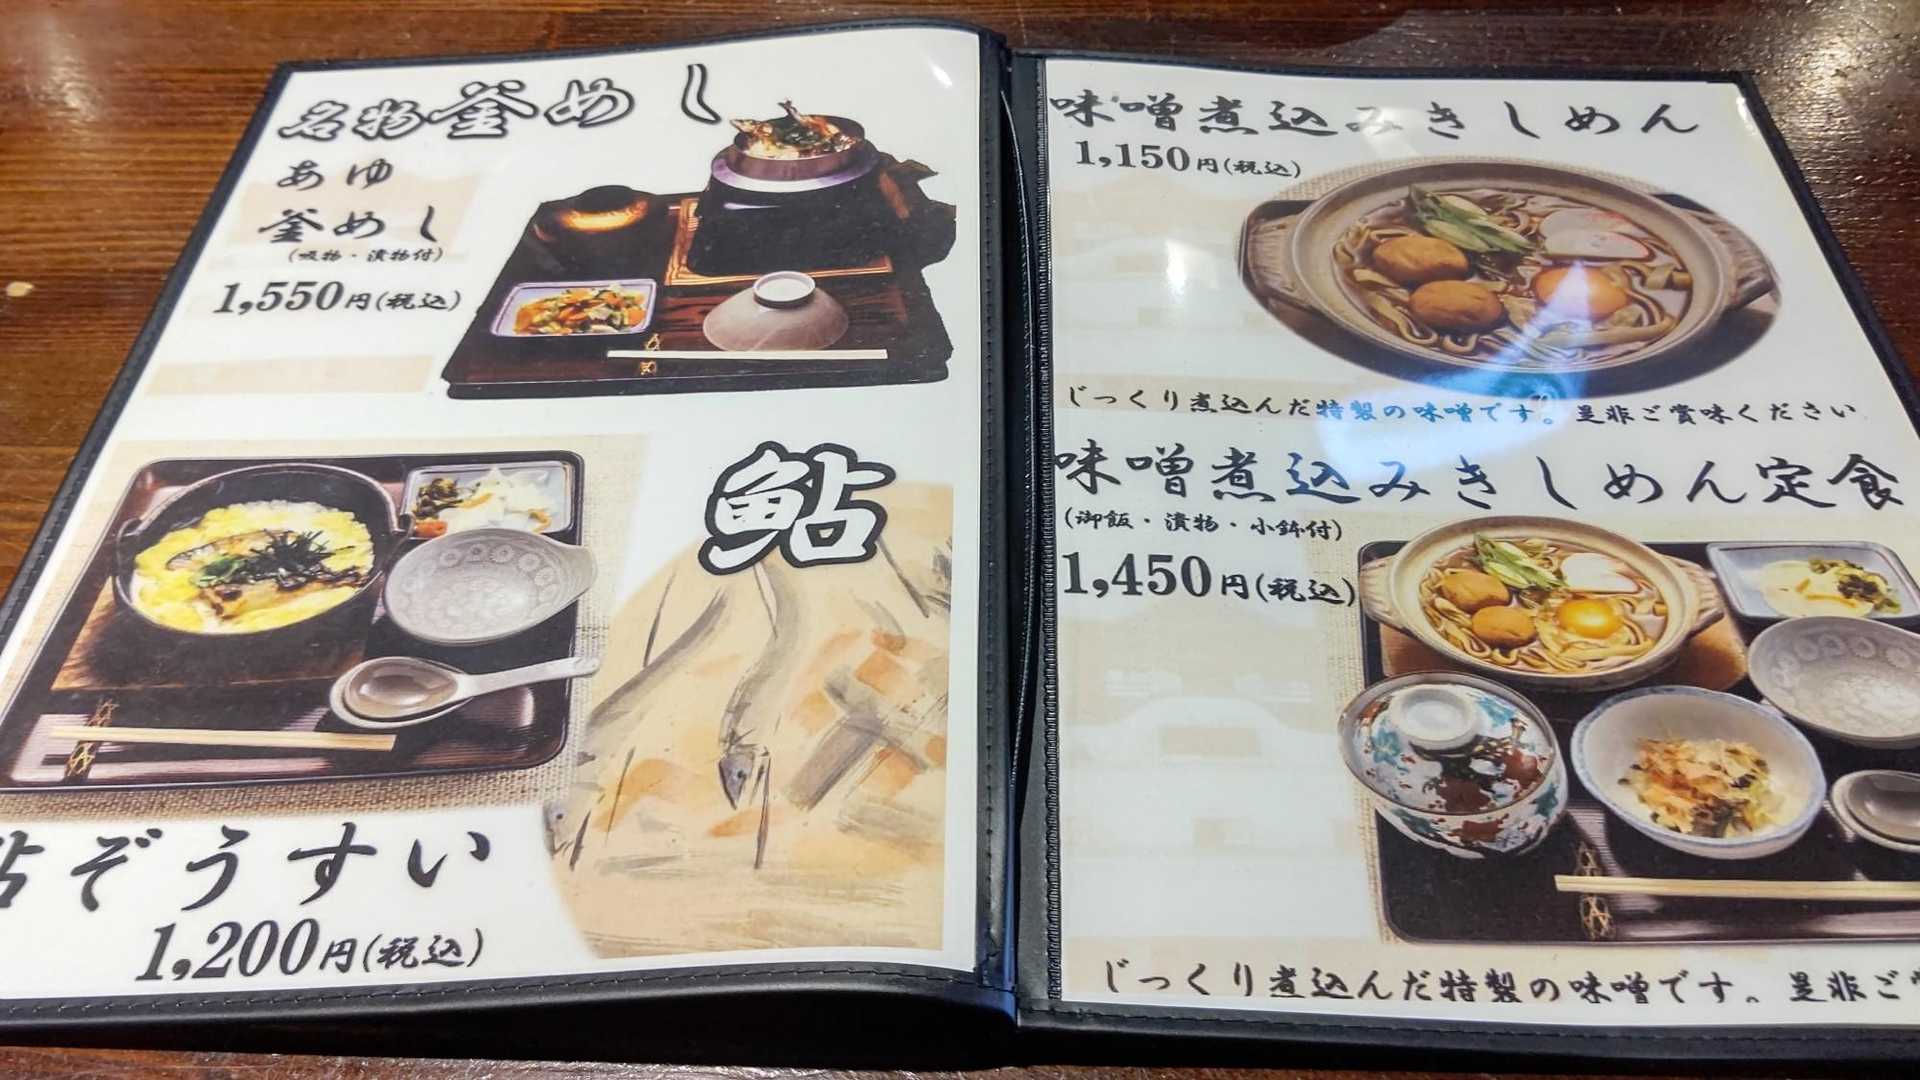 名物釜めし
あゆ
釜めし
(吸物・漬物付)
1,550円(税込)
鮎
鮎ぞうすい
1,200円(税込)
味噌煮込みきしめん
1,150円(税込)
じっくり煮込んだ特製の味噌です。是非ご賞味ください
味噌煮込みきしめん定食
(御飯・漬物・小鉢付)
1,450円(税込)
じっくり煮込んだ特製の味噌です。是非ご